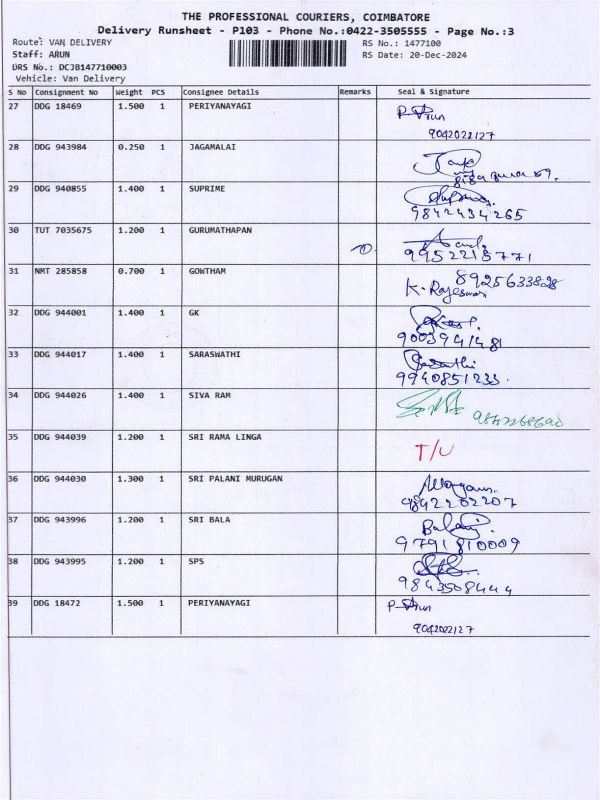 THE PROFESSIONAL COURIERS, COIMBATORE
Delivery Runsheet - P103 - Phone No.:0422-3505555 - Page No.:3
Route: VAN DELIVERY
RS No.: 1477100
Staff: ARUN
RS Date: 20-Dec-2024
DRS No.: DCJB147710003
Vehicle: Van Delivery
S No Consignment No Weight PCS Consignee Details Remarks Seal & Signature
27 DDG 18469 1.500 1 PERIYANAYAGI
9042022127
28 DDG 943984 0.250 1 JAGAMALAI
29 DDG 940855 1.400 1 SUPRIME
9842434265
30 TUT 7035675 1.200 1 GURUMATHAPAN
9952218771
31 NMT 285858 0.700 1 GOWTHAM
8925633828
K. Rajeswari
32 DDG 944001 1.400 1 GK
9003941481
33 DDG 944017 1.400 1 SARASWATHI
9940851233.
34 DDG 944026 1.400 1 SIVA RAM
35 DDG 944039 1.200 1 SRI RAMA LINGA T/U
36 DDG 944030 1.300 1 SRI PALANI MURUGAN
9892202207
37 DDG 943996 1.200 1 SRI BALA
Balaji
9791810009
38 DDG 943995 1.200 1 SPS
9843508444
39 DDG 18472 1.500 1 PERIYANAYAGI
9042022127